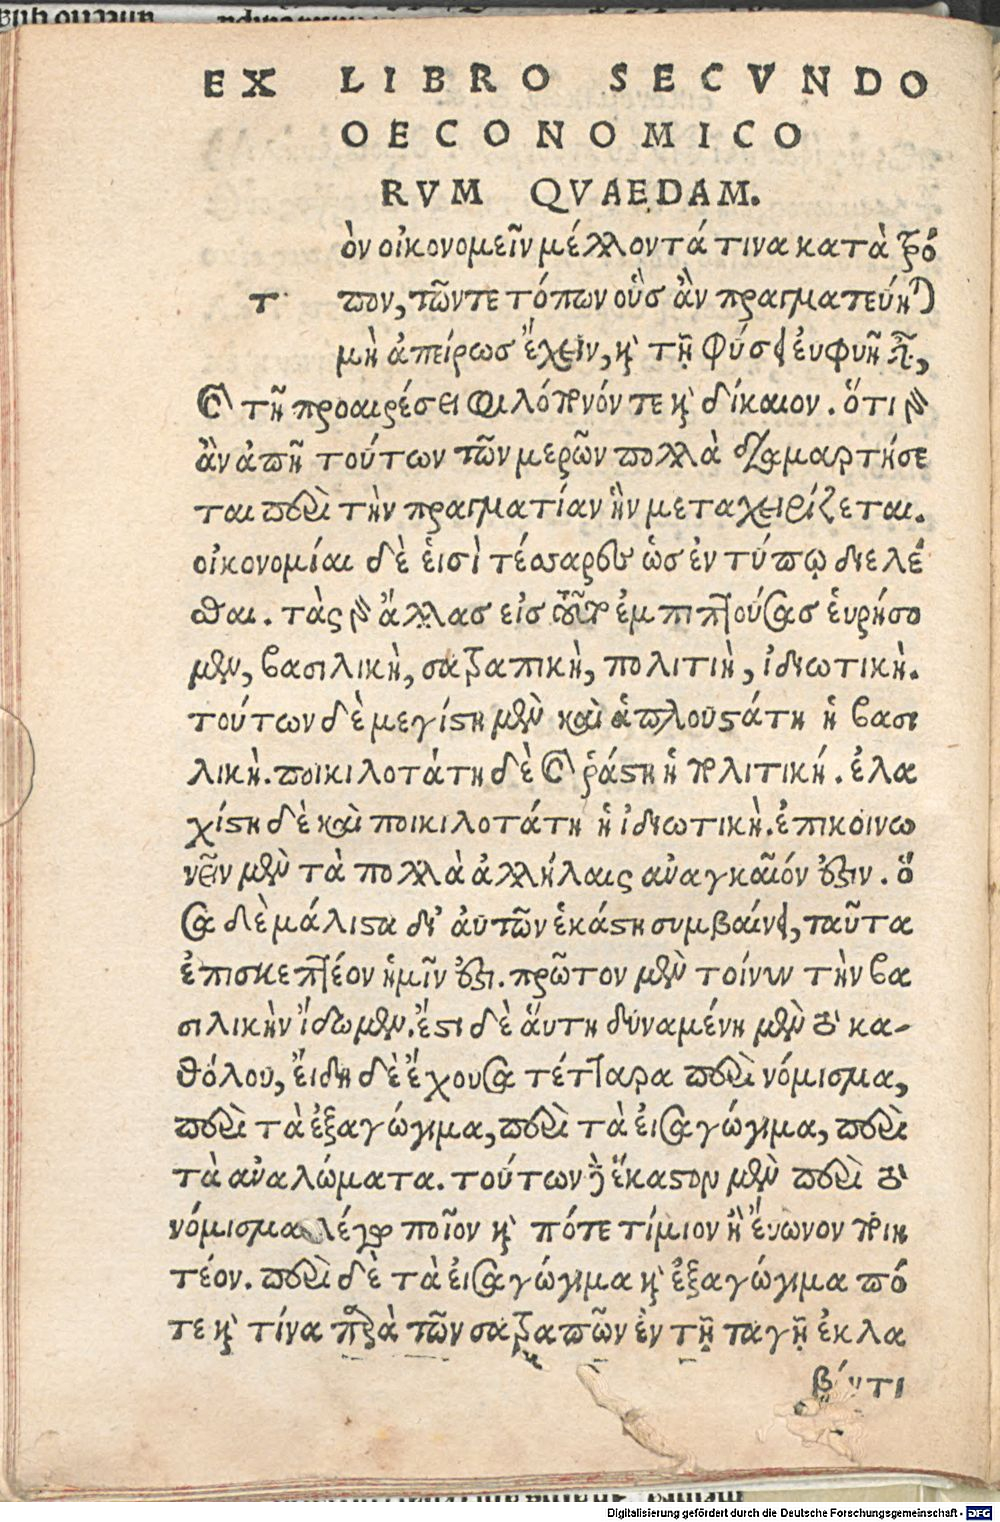 EX LIBRO SECVNDO
OECONOMICO
RVM QVAEDAM.
ὸν οἰκονομεῖν μέλλοντά τινα κατὰ τρό
τ πον, τῶν τε τόπων οὓς ἂν πραγματεύηται
μὴ ἀπείρως ἔχειν, καὶ τῇ φύσει ἐυφυῆ εἶναι,
καὶ τῆ προαιρέσει φιλόπονόν τε καὶ δίκαιον. ὅτι γὰρ
ἂν ἀπῆ τούτων τῶν μερῶν πολλὰ διαμαρτήσε
ται περὶ τὴν πραγματίαν ἣν μεταχειρίζεται.
οἰκονομίαι δὲ ἐισὶ τέσσαρες ὡς ἐν τύπῳ διελέ
σθαι. τὰς γὰρ ἄλλας εἰς τοῦτο ἐμπιπτούσας ἑυρήσο
μεν, βασιλικὴ, σατραπικὴ, πολιτιὴ, ἰδιωτικὴ.
τούτων δὲ μεγίστη μὲν καὶ ἁπλουστάτη ἡ βασι
λικὴ. ποικιλοτάτη δὲ καὶ ῥάστη ἡ πολιτική. ἐλα
χίστη δὲ καὶ ποικιλοτάτη ἡ ἰδιωτικὴ. ἐπικοινω
νεῖν μὲν τὰ πολλὰ ἀλλήλαις ἀναγκαῖόν ἐστιν. ὅ
σα δὲ μάλιστα δι' ἁυτῶν ἑκάστη συμβαίνει, ταῦτα
ἐπισκεπτέον ἡμῖν ἐστι. πρῶτον μὲν τοίνυν τὴν βα
σιλικὴν ἴδωμεν. ἔστι δὲ ἅυτη δυναμένη μὲν τὸ κα-
θόλου, ἔιδη δὲ ἔχουσα τέτταρα περὶ νόμισμα,
περὶ τὰ ἐξαγώγιμα, περὶ τὰ ἐισαγώγιμα, περὶ
τὰ ἀναλώματα. τούτων δὲ ἕκαστον μὲν περὶ τὸ
νόμισμα λέγω ποῖον καὶ πότε τίμιον ἢ ἔυωνον ποιη
τέον. περὶ δὲ τὰ ἐισαγώγιμα καὶ ἐξαγώγιμα πό
τε καὶ τίνα παρὰ τῶν σατραπῶν ἐν τῇ ταγῇ ἐκλα